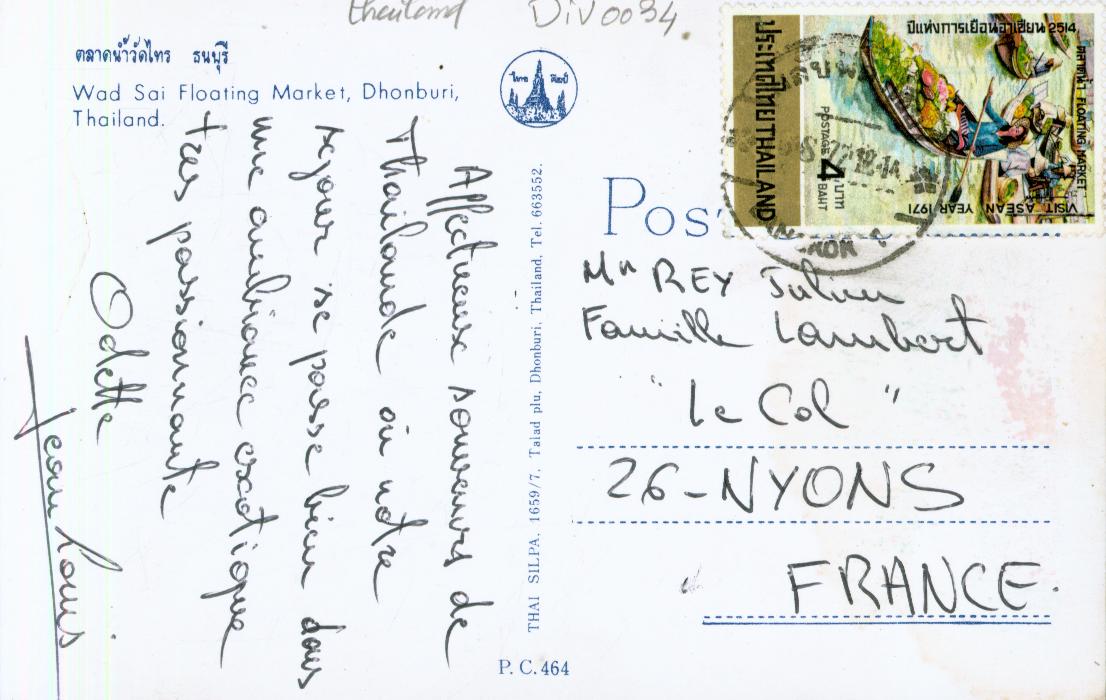 thailand DIV0034
ตลาดน้ำวัดไทร ธนบุรี
Wad Sai Floating Market, Dhonburi,
Thailand.
ไทย ศิลป์
Affectueux souvenirs de
Thaïlande où notre
séjour se passe bien dans
une ambiance exotique
très passionnante
Odette
Jean Louis
THAI SILPA, 1659/7, Talad plu, Dhonburi, Thailand, Tel. 663552.
P.C. 464
ประเทศไทย/THAILAND
ปีแห่งการเยือนอาเซียน 2514
ตลาดน้ำ FLOATING MARKET
VISIT ASEAN YEAR 1971
POSTAGE 4 บาท BAHT
POS
Mr REY Julien
Famille Lambert
"Le Col"
26-NYONS
FRANCE.